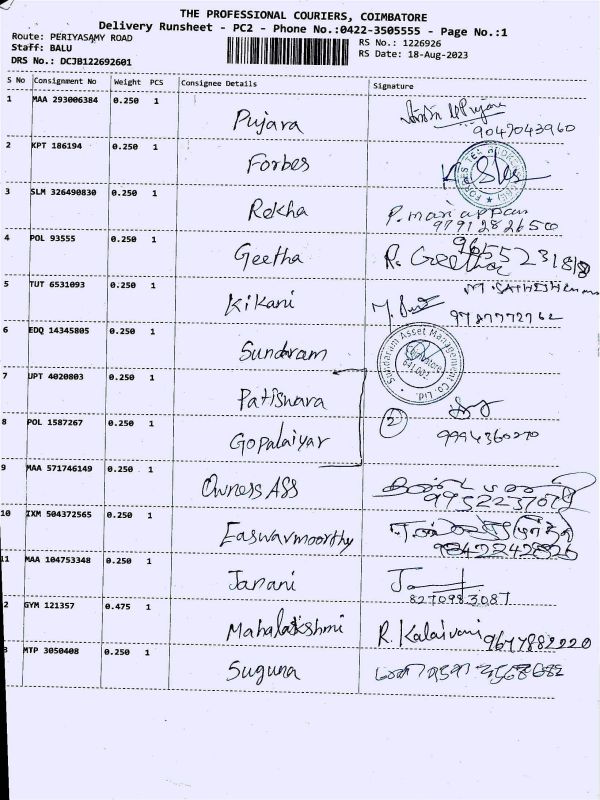 THE PROFESSIONAL COURIERS, COIMBATORE
Delivery Runsheet - PC2 - Phone No.:0422-3505555 - Page No.:1
Route: PERIYASAMY ROAD
RS No.: 1226926
Staff: BALU
RS Date: 18-Aug-2023
DRS No.: DCJB122692601
S No Consignment No Weight PCS Consignee Details Signature
1 MAA 293006384 0.250 1 Pujara Pujara
9047043960
2 KPT 186194 0.250 1 Forbes
3 SLM 326490830 0.250 1 Rekha P. mariappan
9791282650
4 POL 93555 0.250 1 Geetha R. Geetha 9655523188
5 TUT 6531093 0.250 1 Kikani
9787772762
6 EDQ 14345805 0.250 1 Sundaram Sundaram Asset Management Co. Ltd.
7 UPT 4020803 0.250 1 Patishwara
8 POL 1587267 0.250 1 Gopalaiyar 2 9994360270
9 MAA 571746149 0.250 1 Owness ASS
10 IXM 504372565 0.250 1 Easwarmoorthy
9842242826
11 MAA 104753348 0.250 1 Janani
8270983087
2 GYM 121357 0.475 1 Mahalakshmi R. Kalaivani 9677882220
3 MTP 3050408 0.250 1 Suguna